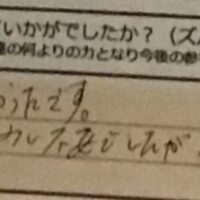 いかがでしたか？（ズバ
の何よりの力となり今後の参
ったです。
少し不安でしたが